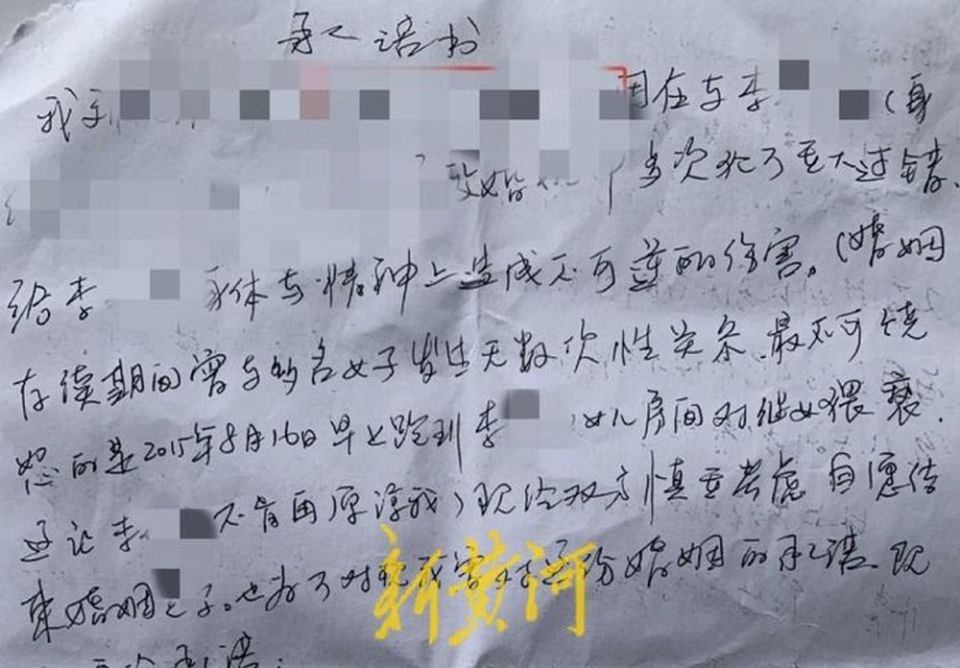 承诺书
我 因在与李 （身
婚 多次犯了重大过错，
给李 身体与精神上造成不可逆的伤害。（婚姻
存续期间曾与多名女子发生无数次性关系，最不可饶
恕的是2015年8月16日早上跑到李 女儿房间对继女猥亵，
这让李 不肯再原谅我）现经双方慎重考虑自愿结
束婚姻 也为了对 婚姻的承诺，现
承诺：
新黄河